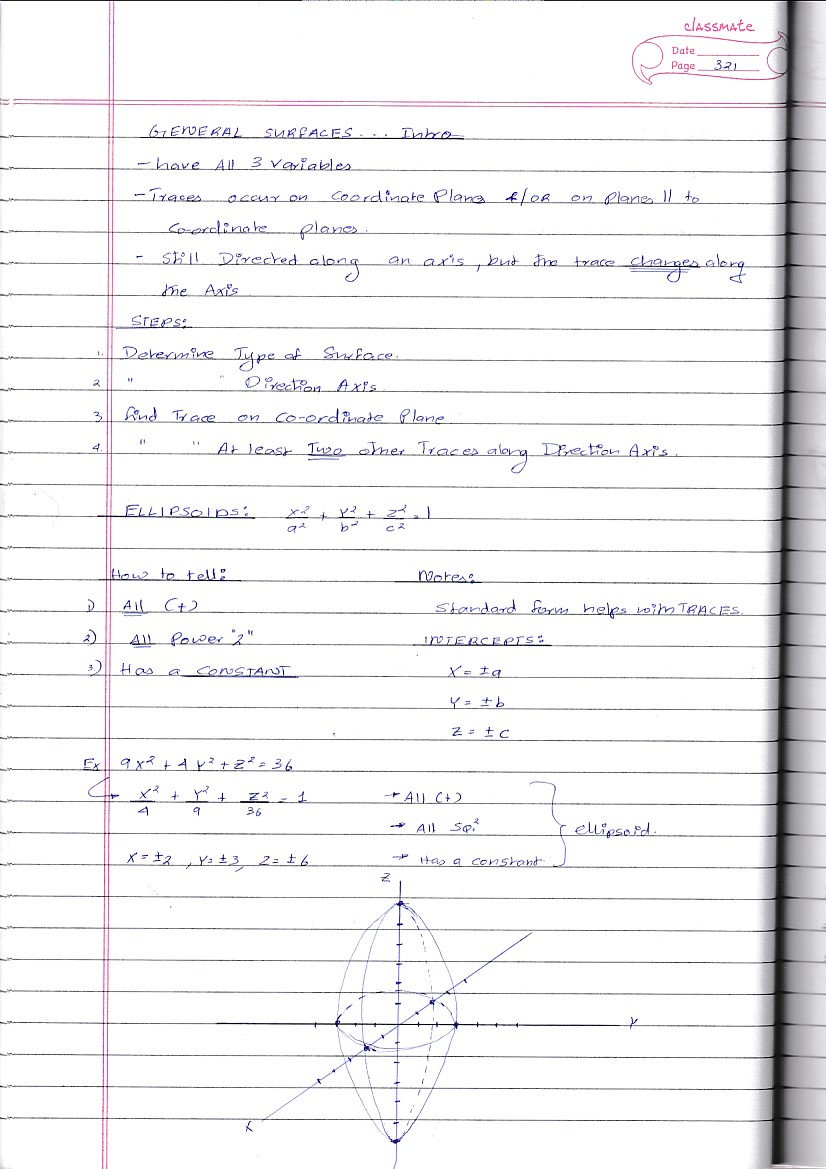 classmate
Date
Page 321
GENERAL SURFACES... Intro
- have All 3 variables
- Traces occur on Coordinate Planes &/OR on planes || to
Co-ordinate planes.
- Still Directed along an axis, but the trace changes along
the Axis
STEPS:
1. Determine Type of Surface.
2. " " Direction Axis.
3. find Trace on Co-ordinate Plane
4. " " At least Two other Traces along Direction Axis.
ELLIPSOIDS: x²/a² + y²/b² + z²/c² = 1
How to tell: Notes:
1) All (+) Standard form helps with TRACES.
2) All Power "2" INTERCEPTS:
3) Has a CONSTANT X = ±a
Y = ±b
Z = ±c
Ex 9x² + 4y² + z² = 36
→ x²/4 + y²/9 + z²/36 = 1 → All (+)
→ All sq.² ellipsoid.
X = ±2, Y = ±3, Z = ±6 → Has a constant
Z
Y
X